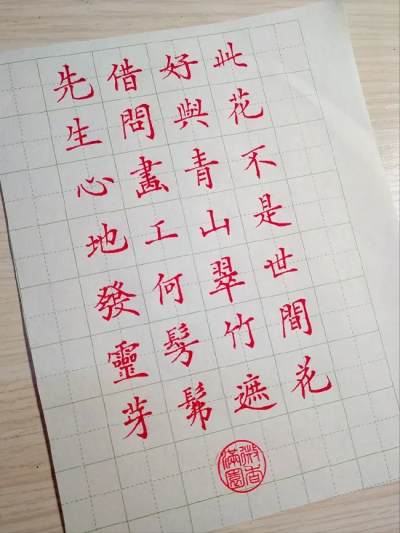 此花不是世間花
好與青山翠竹遮
借問畫工何髣髴
先生心地發靈芽
微香
滿園